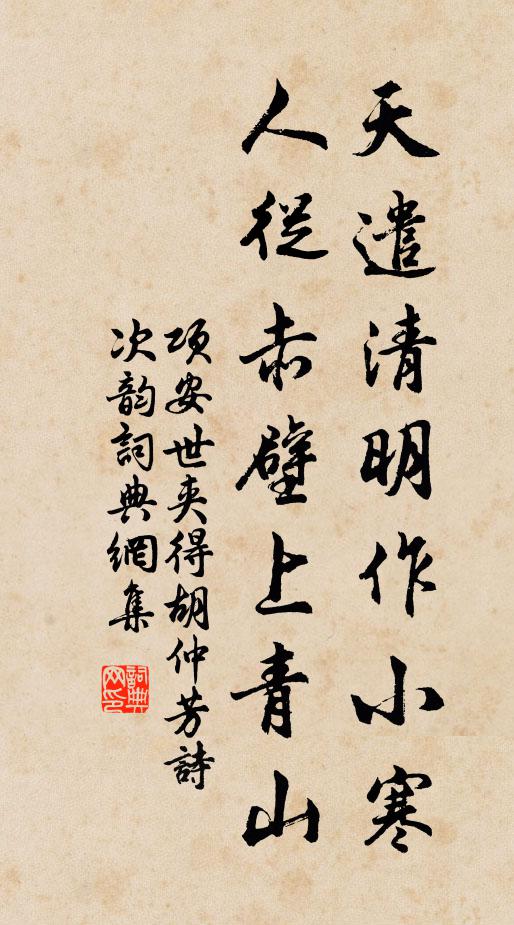 天遣清明作小寒
人從赤壁上青山
項安世夾得胡仲芳詩
次韵詞典網集
詞典网印